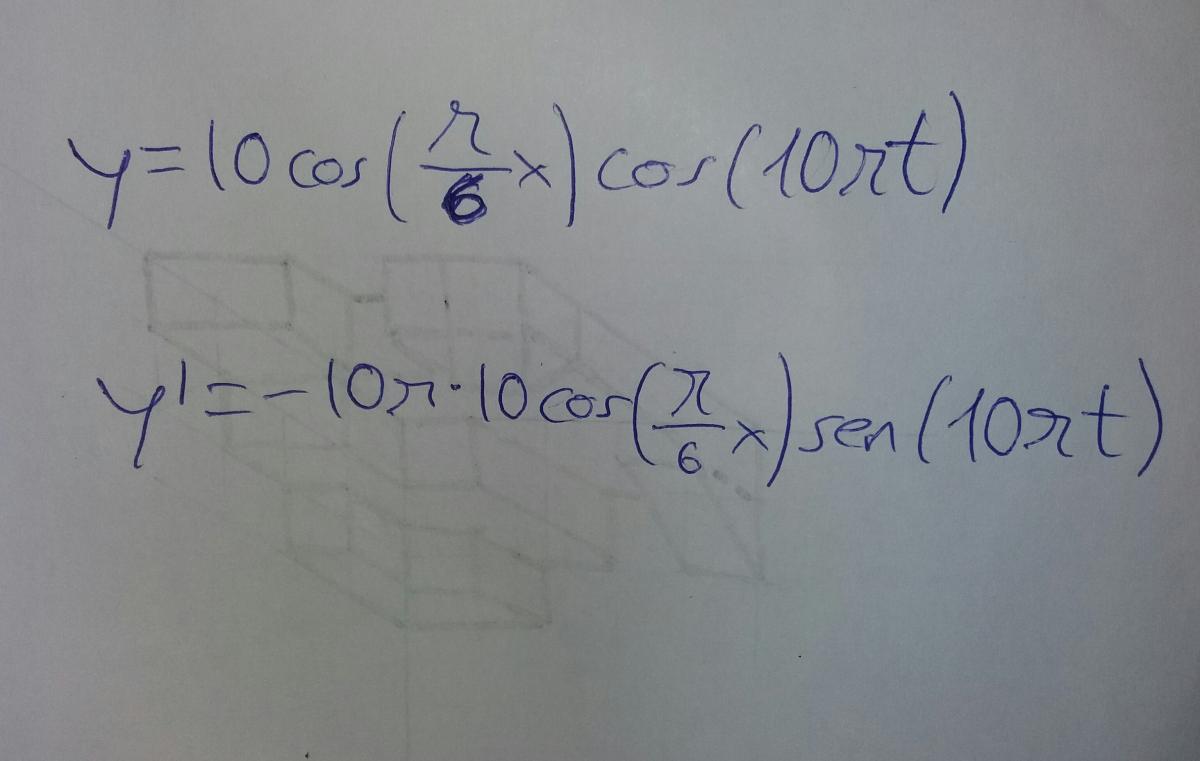 y=10cos(π/6 x)cos(10πt)
y'=-10π·10cos(π/6 x)sen(10πt)